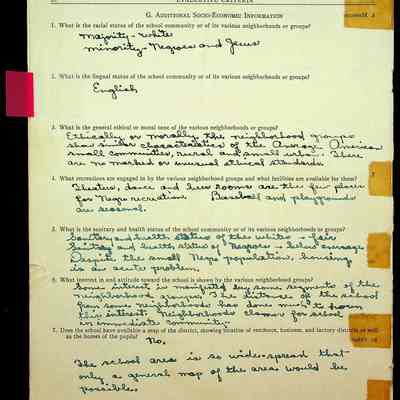 EVALUATIVE CRITERIA
G. ADDITIONAL SOCIO-ECONOMIC INFORMATION
1. What is the racial status of the school community or of its various neighborhoods or groups?
Majority - White
Minority - Negroes and Jews
2. What is the lingual status of the school community or of its various neighborhoods or groups?
English
3. What is the general ethical or moral tone of the various neighborhoods or groups?
Ethically or morally the neighborhood groups
show similar characteristics of the average American
small communities, rural and small urban. There
are no marked or unusual ethical standards.
4. What recreations are engaged in by the various neighborhood groups and what facilities are available for them?
Theatres, dance and beer rooms are the few places
for Negro recreation. Baseball and playgrounds
are seasonal.
5. What is the sanitary and health status of the school community or of its various neighborhoods or groups?
Sanitary and health status of the whites - fair
Sanitary and health status of Negroes - below average
Despite the small Negro population, housing
is an acute problem.
6. What interest in and attitude toward the school is shown by the various neighborhood groups?
Some interest is manifested by some segments of the
neighborhood groups. The distance of the school
from some neighborhoods has done much to
this interest. Neighborhoods clamor for school
in immediate community.
7. Does the school have available a map of the district, showing location of residence, business, and factory districts as well
as the homes of the pupils?
No.
The school area is so wide-spread that
only a general map of the area would be
possible.